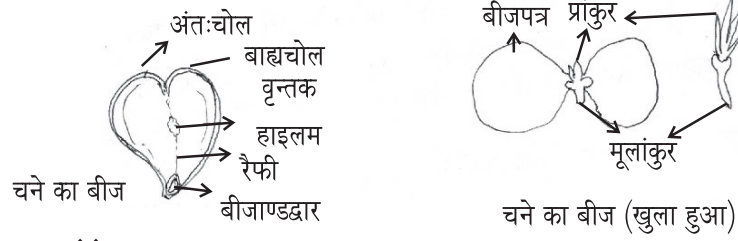 अंतःचोल
बाह्यचोल
वृन्तक
हाइलम
रैफी
बीजाण्डद्वार
चने का बीज
बीजपत्र प्रांकुर
मूलांकुर
चने का बीज (खुला हुआ)